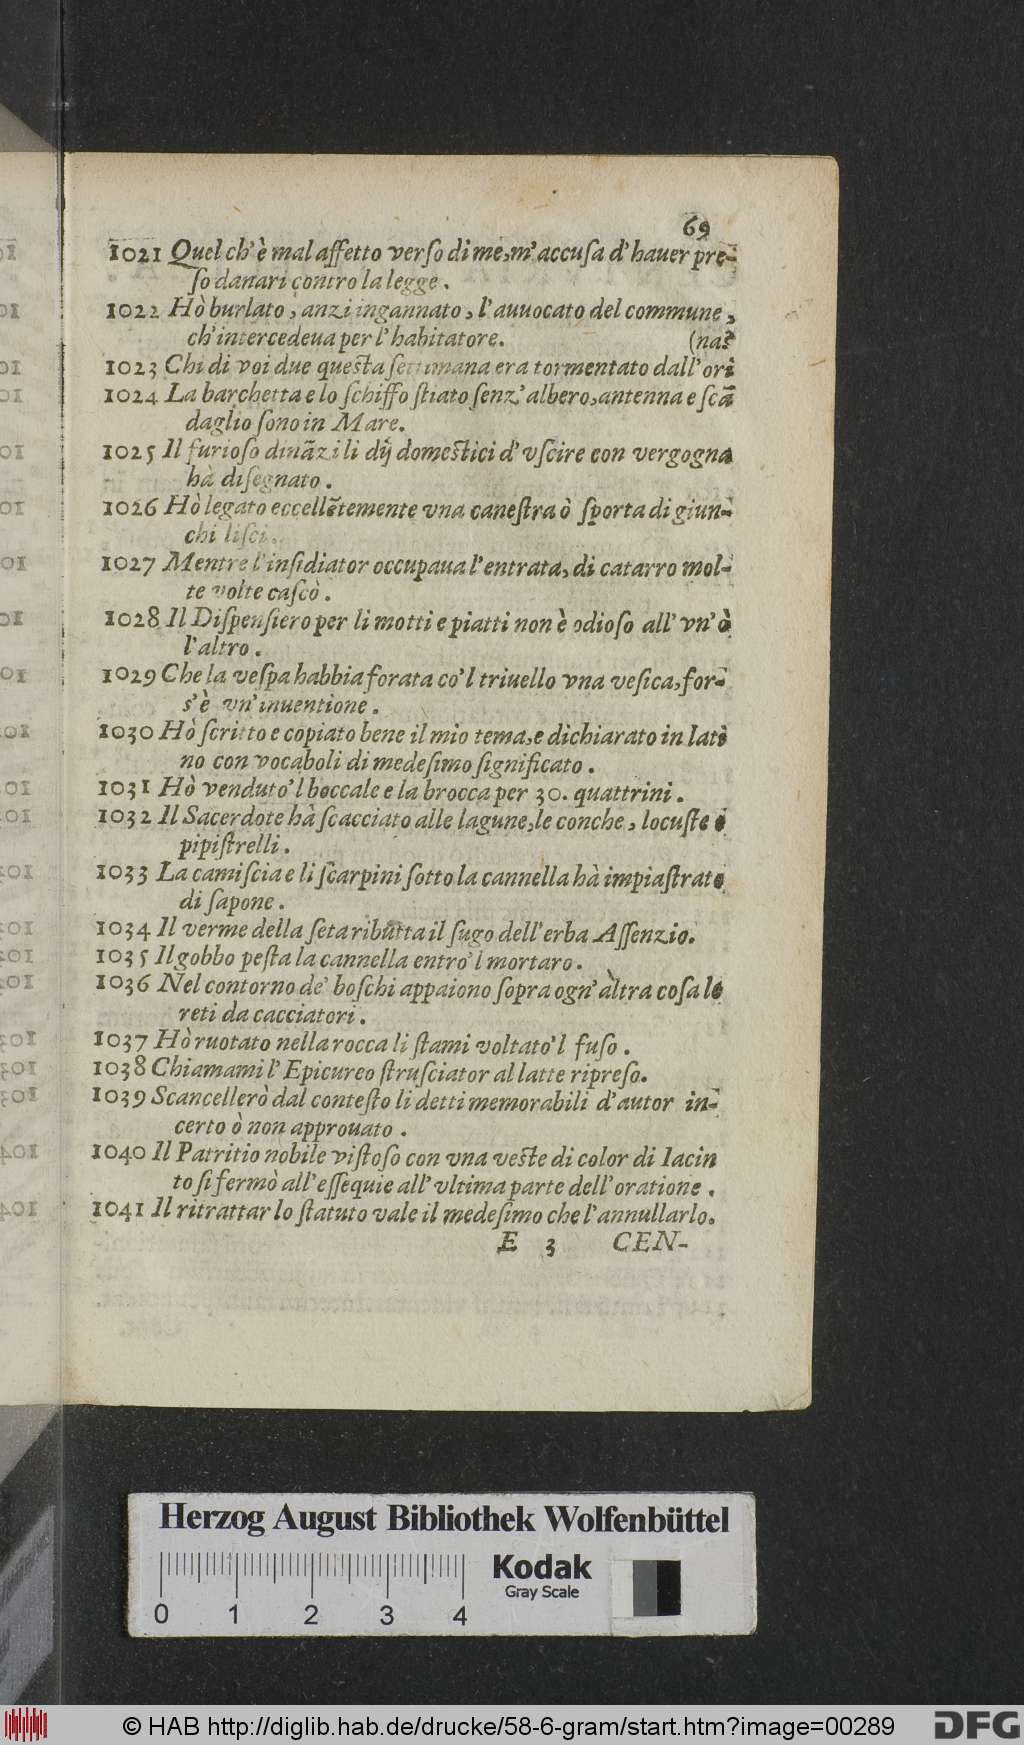 69
1021 Quel ch'è mal affetto verſo di me, m'accuſa d'hauer pre-
ſo danari contro la legge.
1022 Hò burlato, anzi ingannato, l'auuocato del commune,
ch'intercedeua per l'habitatore. (na?
1023 Chi di voi due queſta ſettimana era tormentato dall'ori
1024 La barchetta e lo ſchiffo ſtiato ſenz'albero, antenna e ſcã
daglio ſono in Mare.
1025 Il furioſo dinãzi li dÿ domeſtici d'vſcire con vergogna
hà diſegnato.
1026 Hò legato eccellẽtemente vna caneſtra ò ſporta di giun-
chi liſci.
1027 Mentre l'inſidiator occupaua l'entrata, di catarro mol-
te volte caſcò.
1028 Il Diſpenſiero per li motti e piatti non è odioſo all'vn'ò
l'altro.
1029 Che la veſpa habbia forata co'l triuello vna veſica, for-
s'è vn'inuentione.
1030 Hò ſcritto e copiato bene il mio tema, e dichiarato in lati
no con vocaboli di medeſimo ſignificato.
1031 Hò venduto'l boccale e la brocca per 30. quattrini.
1032 Il Sacerdote hà ſcacciato alle lagune, le conche, locuſte e
pipiſtrelli.
1033 La camiſcia e li ſcarpini ſotto la cannella hà impiaſtrato
di ſapone.
1034 Il verme della ſeta ributta il ſugo dell'erba Aſſenzio.
1035 Il gobbo peſta la cannella entro'l mortaro.
1036 Nel contorno de' boſchi appaiono ſopra ogn'àltra coſa le
reti da cacciatori.
1037 Hò ruotato nella rocca li ſtami voltato'l fuſo.
1038 Chiamami l'Epicureo ſtruſciator al latte ripreſo.
1039 Scancellerò dal conteſto li detti memorabili d'autor in-
certo ò non approuato.
1040 Il Patritio nobile viſtoſo con vna veſte di color di Iacin
to ſi fermò all'eſſequie all'vltima parte dell'oratione.
1041 Il ritrattar lo ſtatuto vale il medeſimo che l'annullarlo.
E 3 CEN-
Herzog August Bibliothek Wolfenbüttel
Kodak
Gray Scale
0 1 2 3 4
© HAB http://diglib.hab.de/drucke/58-6-gram/start.htm?image=00289
DFG